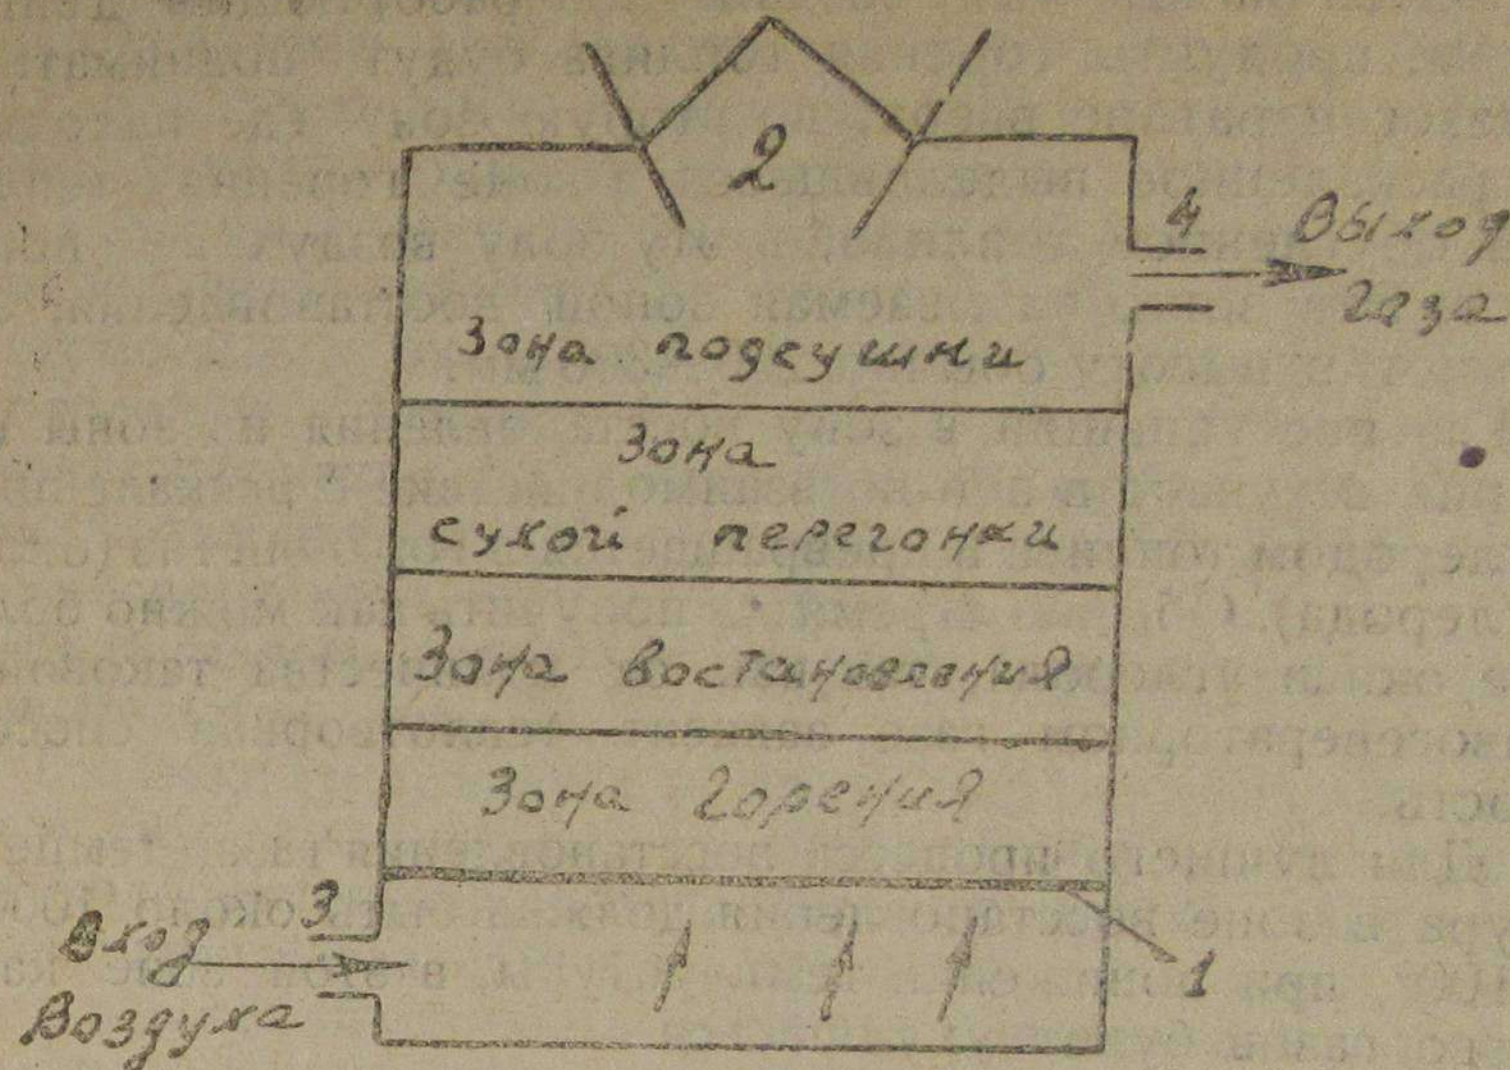 2
4 Выход
газа
Зона подсушки
Зона
сухой перегонки
Зона востановления
Зона Горения
3
Вход
Воздуха
1